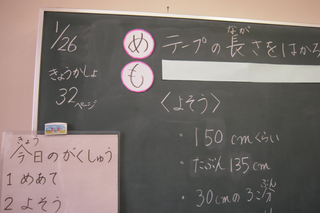 1/26
きょうかしょ
32ページ
め
も
テープの長さをはかろ
なが
〈よそう〉
・150cmくらい
・たぶん135cm
・30cmの3こ分
ぶん
きょう
今日のがくしゅう
1 めあて
2 よそう